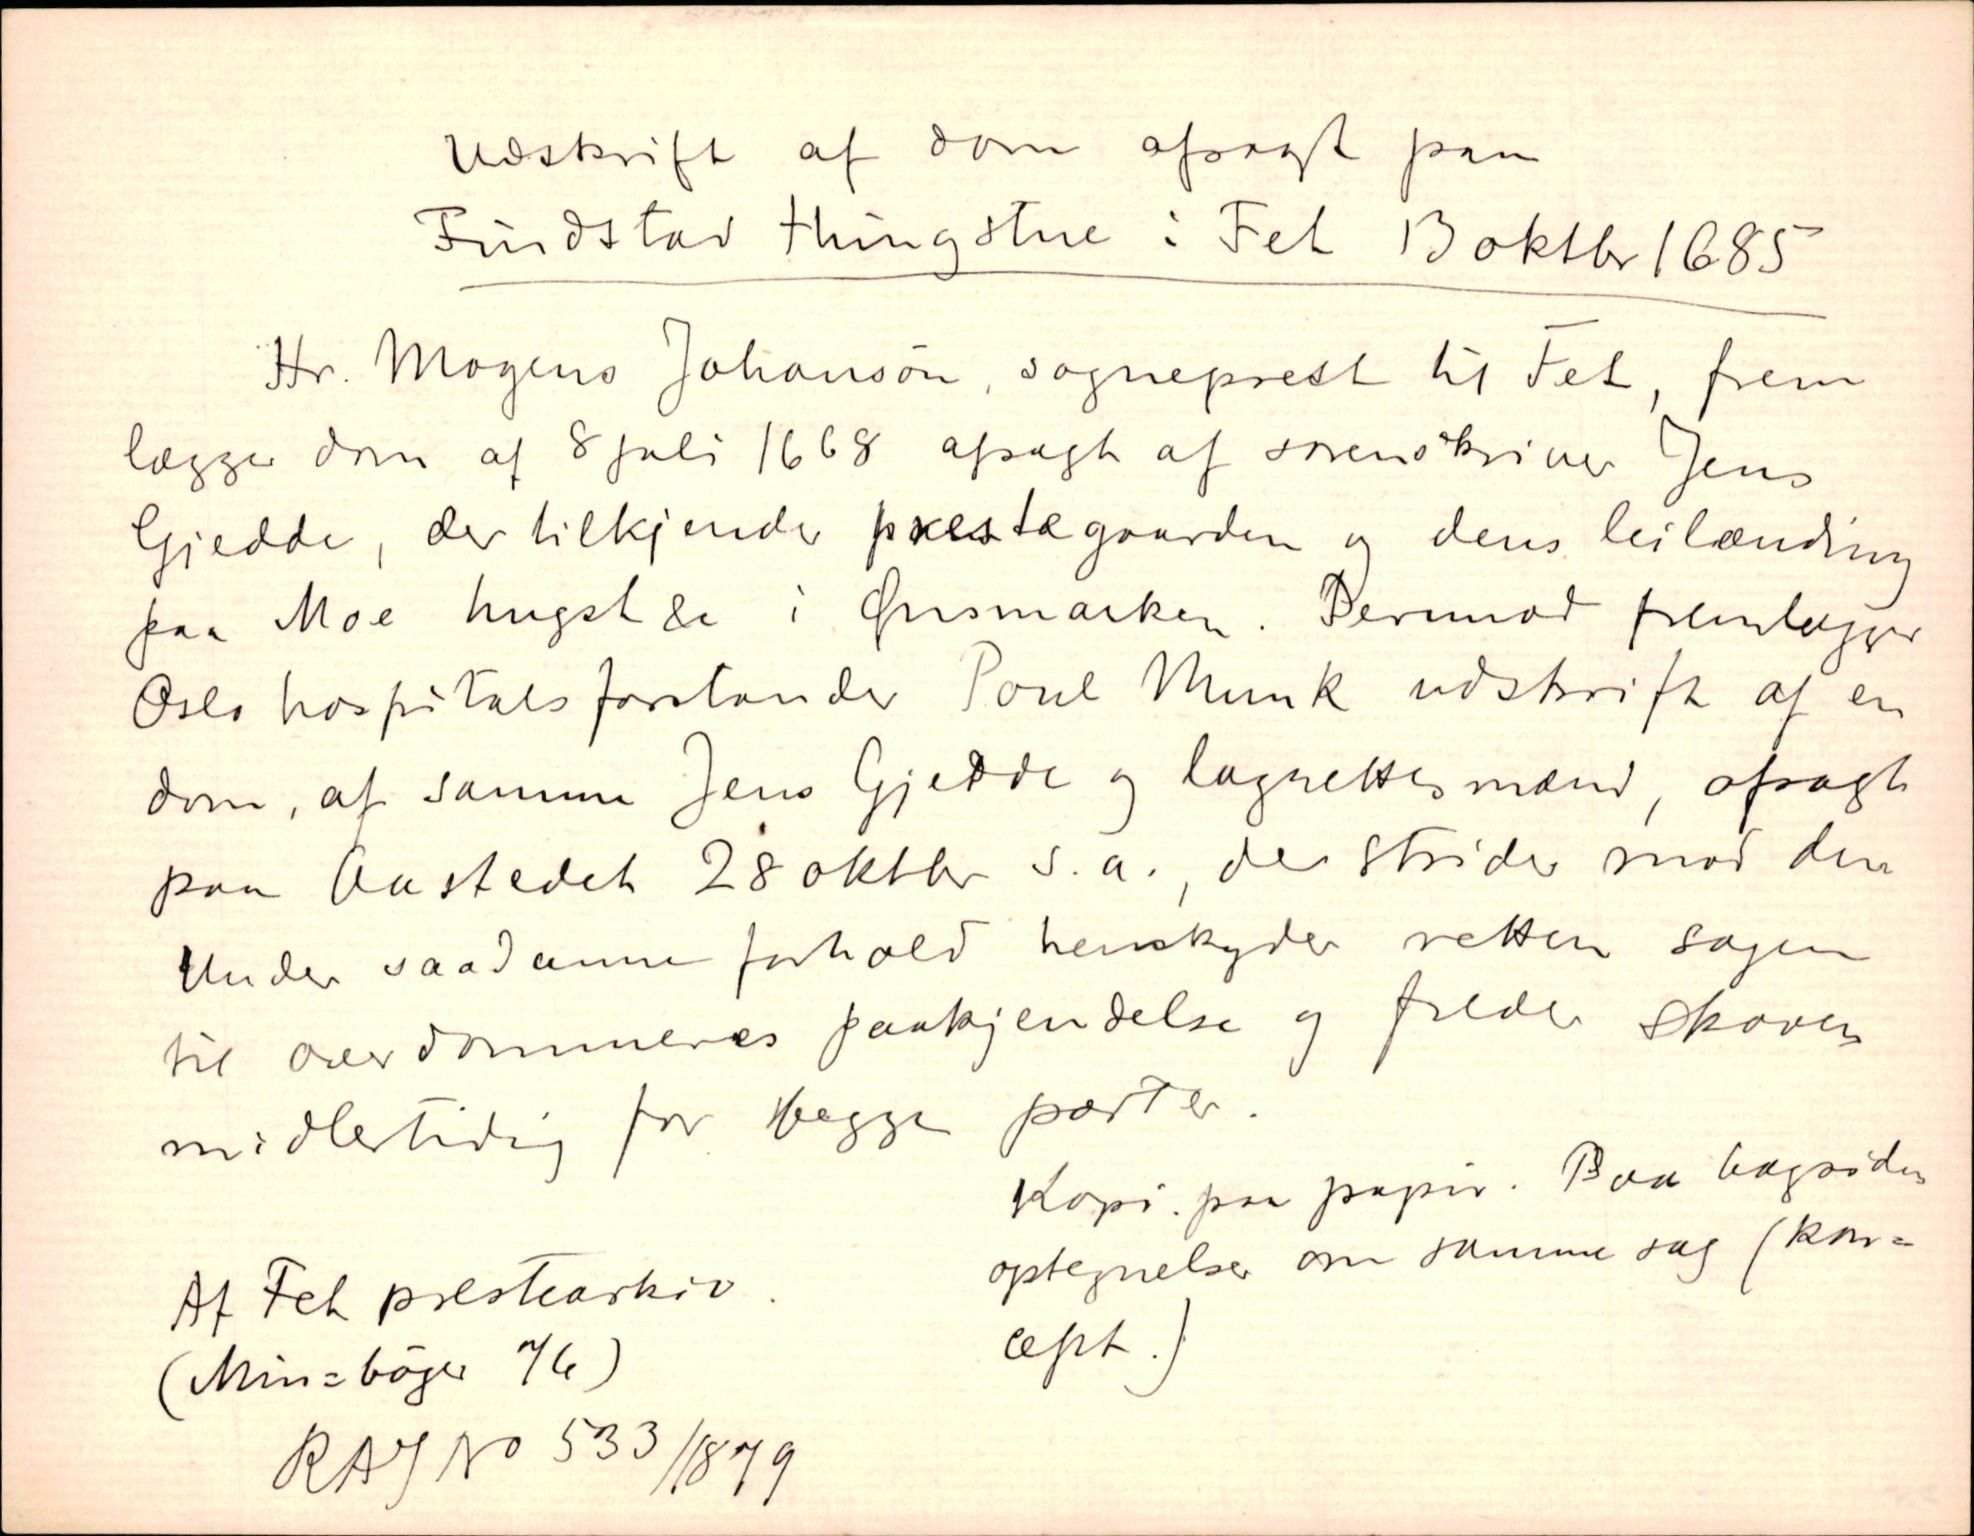 Udskrift af dom afsagt paa
Findstad thingstue i Fet 13 oktbr 1685
Hr. Mogens Johansön, sogneprest til Fet, frem
lægger dom af 8 juli 1668 afsagt af sorenskriver Jens
Gjedde, der tilkjender prestegaarden og dens leilænding
paa Moe hugst &c i Ørsmarken. Derimod fremlægger
Oslo hospitals forstander Poul Munk udskrift af en
dom, af samme Jens Gjedde og lagrettesmænd, afsagt
paa aastedet 28 oktbr s. a., der strider mod den
Under saadanne forhold henskyder retten sagen
til overdommeres paakjendelse og freder skoven
midlertidig for begge parter.
Kopi paa papir. Paa bagsiden
optegnelser om samme sag (kon=
cept.)
Af Fet prestearkiv.
(Min=böger 76)
RAJ No 533/1879